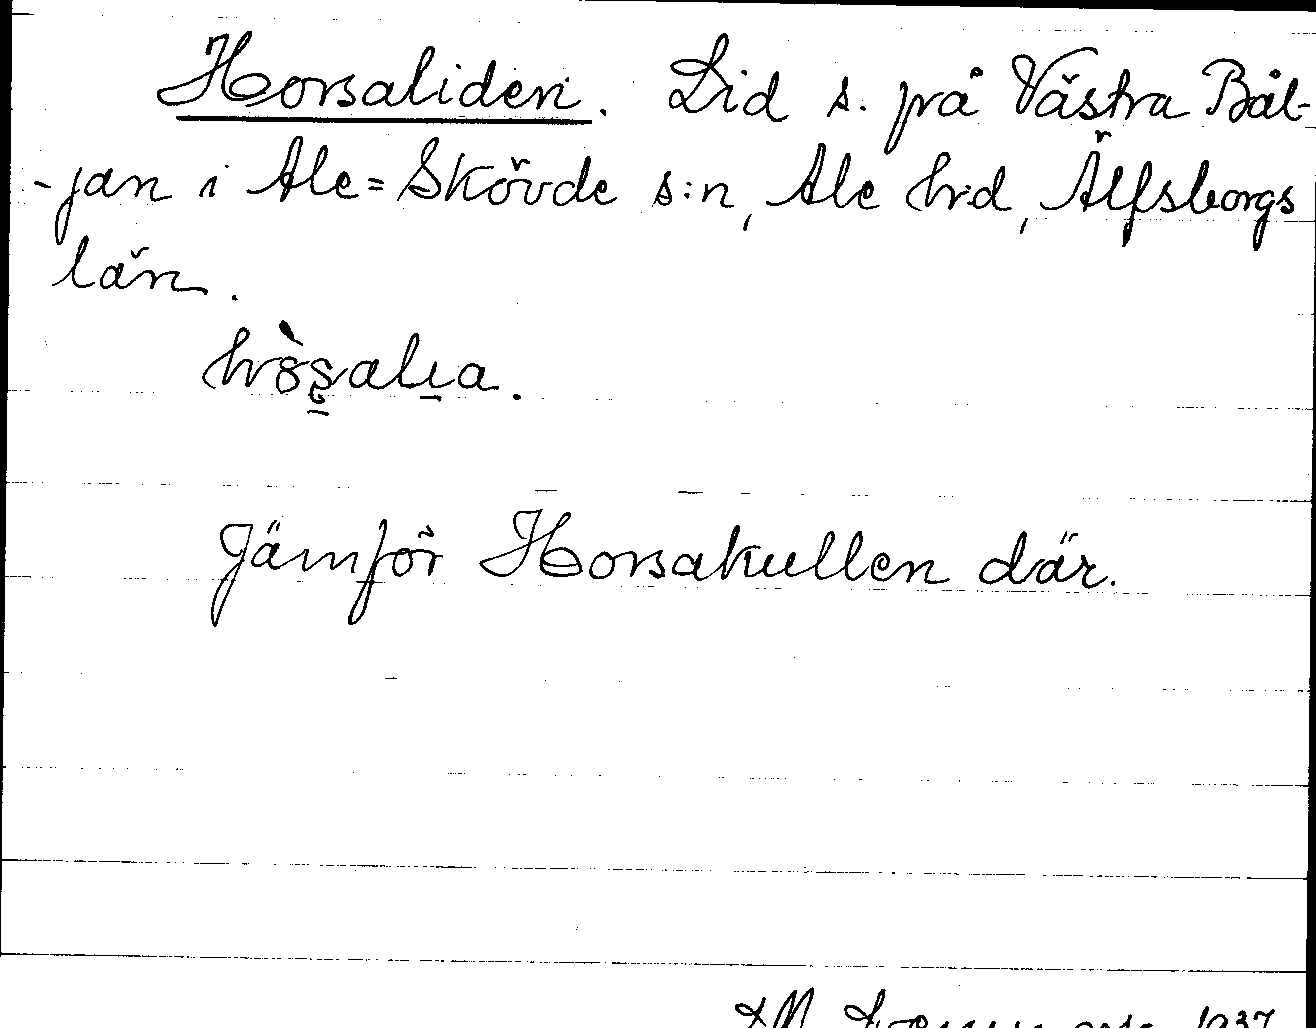 Horsaliden. Lid s. på Västra Bål-
-jan i Ale=Skövde s:n, Ale h:d, Älfsborgs
län.
Jämför Horsakullen där.
1937